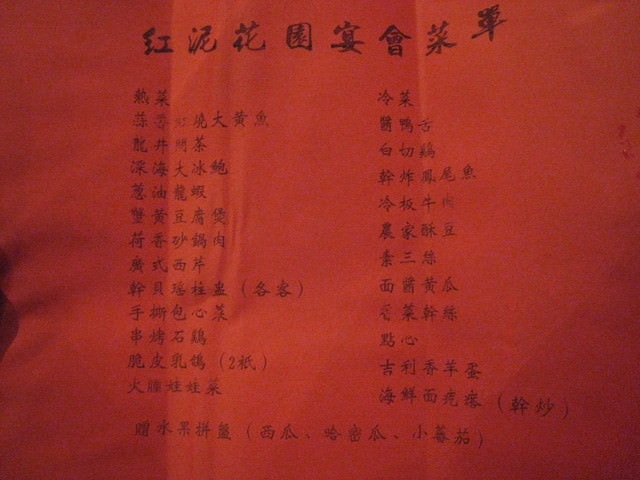 紅泥花園宴會菜單
熱菜
蒜香紅燒大黃魚
龍井問茶
深海大冰鮑
蔥油龍蝦
蟹黃豆腐煲
荷香砂鍋肉
廣式西芹
幹貝瑤柱盅(各客)
手撕包心菜
串烤石鷄
脆皮乳鴿(2衹)
火腫娃娃菜
贈水果拼盤(西瓜、哈密瓜、小蕃茄)
冷菜
醬鴨舌
白切鷄
幹炸鳳尾魚
冷板牛肉
農家酥豆
素三絲
面醬黃瓜
菜幹絲
點心
吉利香芋蛋
海鮮面疙瘩(幹炒)